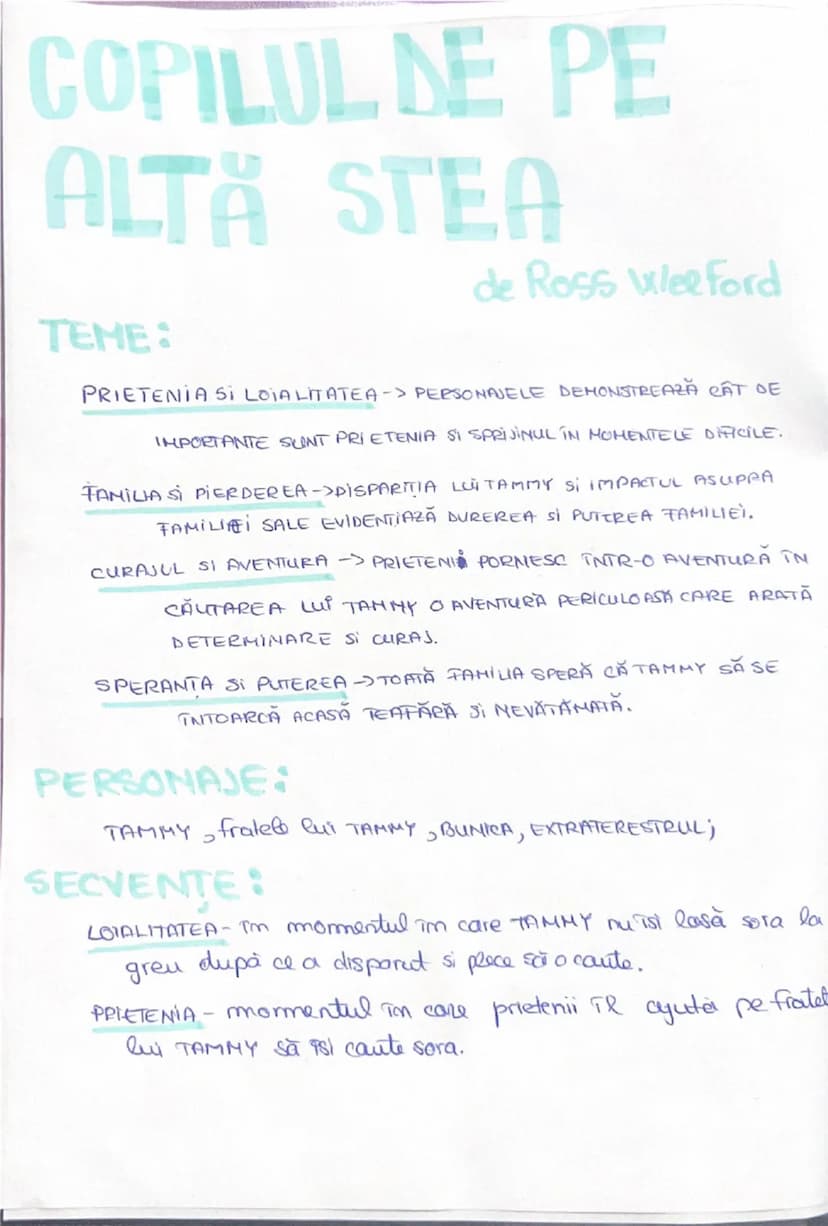 COPILUL DE PE
ALTĂ STEA
de Ross Welford
TEME:
PRIETENIA Si LOIALITATEA -> PERSONAJELE DEMONSTREAZĂ CÂT DE
IMPORTANTE SUNT PRIETENIA SI SPRIJINUL ÎN MOMENTELE DIFICILE.
FAMILIA Si PIERDEREA -> DISPARIȚIA LUI TAMMY Si IMPACTUL ASUPRA
FAMILIEI SALE EVIDENȚIAZĂ DUREREA SI PUTEREA FAMILIEI.
CURAJUL SI AVENTURA -> PRIETENII PORNESC ÎNTR-O AVENTURĂ ÎN
CĂUTAREA LUI TAMMY O AVENTURĂ PERICULOASĂ CARE ARATĂ
DETERMINARE Si CURAJ.
SPERANȚA Si PUTEREA -> TOATĂ FAMILIA SPERĂ CĂ TAMMY SĂ SE
ÎNTOARCĂ ACASĂ TEAFĂRĂ SI NEVĂTĂMATĂ.
PERSONAJE:
TAMMY, fratele lui TAMMY, BUNICA, EXTRATERESTRUL;
SECVENȚE:
LOIALITATEA - în momentul în care TAMMY nu ÎSI lasă sora la
greu după ce a disparut si plece să o caute.
PRIETENIA - momentul în care prietenii îl ajută pe fratel
lui TAMMY să îsi caute sora.